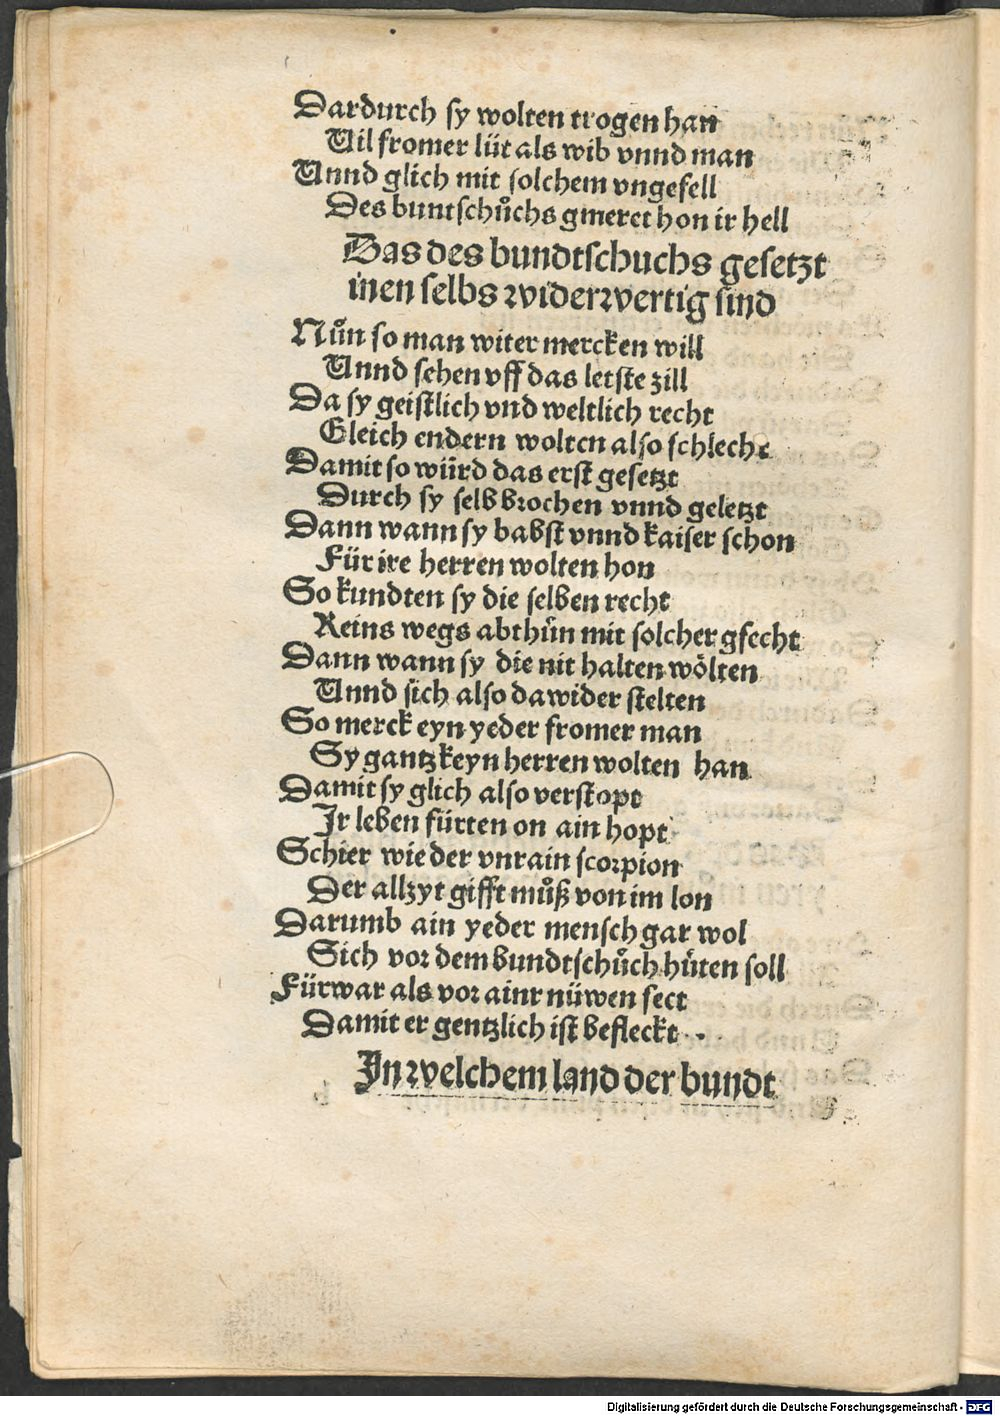 Dardurch sy wolten trogen han
Vil fromer lüt als wib vnnd man
Vnnd glich mit solchem vngefell
Des buntschůchs gmeret hon ir hell
Das des bundtschuchs gesetzt
inen selbs widerwertig sind
Nůn so man witer mercken will
Vnnd sehen vff das letste zill
Da sy geistlich vnd weltlich recht
Gleich endern wolten also schlecht
Damit so würd das erst gesetzt
Durch sy selb brochen vnnd geletzt
Dann wann sy babst vnnd kaiser schon
Für ire herren wolten hon
So kundten sy die selben recht
Keins wegs abthůn mit solcher gfecht
Dann wann sy die nit halten wölten
Vnnd sich also dawider stelten
So merck eyn yeder fromer man
Sy gantz keyn herren wolten han
Damit sy glich also verstopt
Ir leben fürten on ain hopt
Schier wie der vnrain scorpion
Der allzyt gifft můß von im lon
Darumb ain yeder mensch gar wol
Sich vor dem bundtschůch hüten soll
Fürwar als vor ainr nüwen sect
Damit er gentzlich ist befleckt
In welchem land der bundt
Digitalisierung gefördert durch die Deutsche Forschungsgemeinschaft - DFG